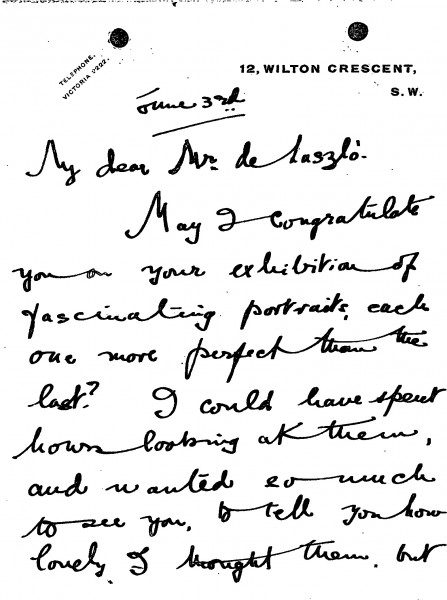 TELEPHONE,
VICTORIA 2292.
12, WILTON CRESCENT,
S. W.
June 3rd
My dear Mr. de László.
May I congratulate
you on your exhibition of
fascinating portraits, each
one more perfect than the
last? I could have spent
hours looking at them,
and wanted so much
to see you, to tell you how
lovely I thought them, but